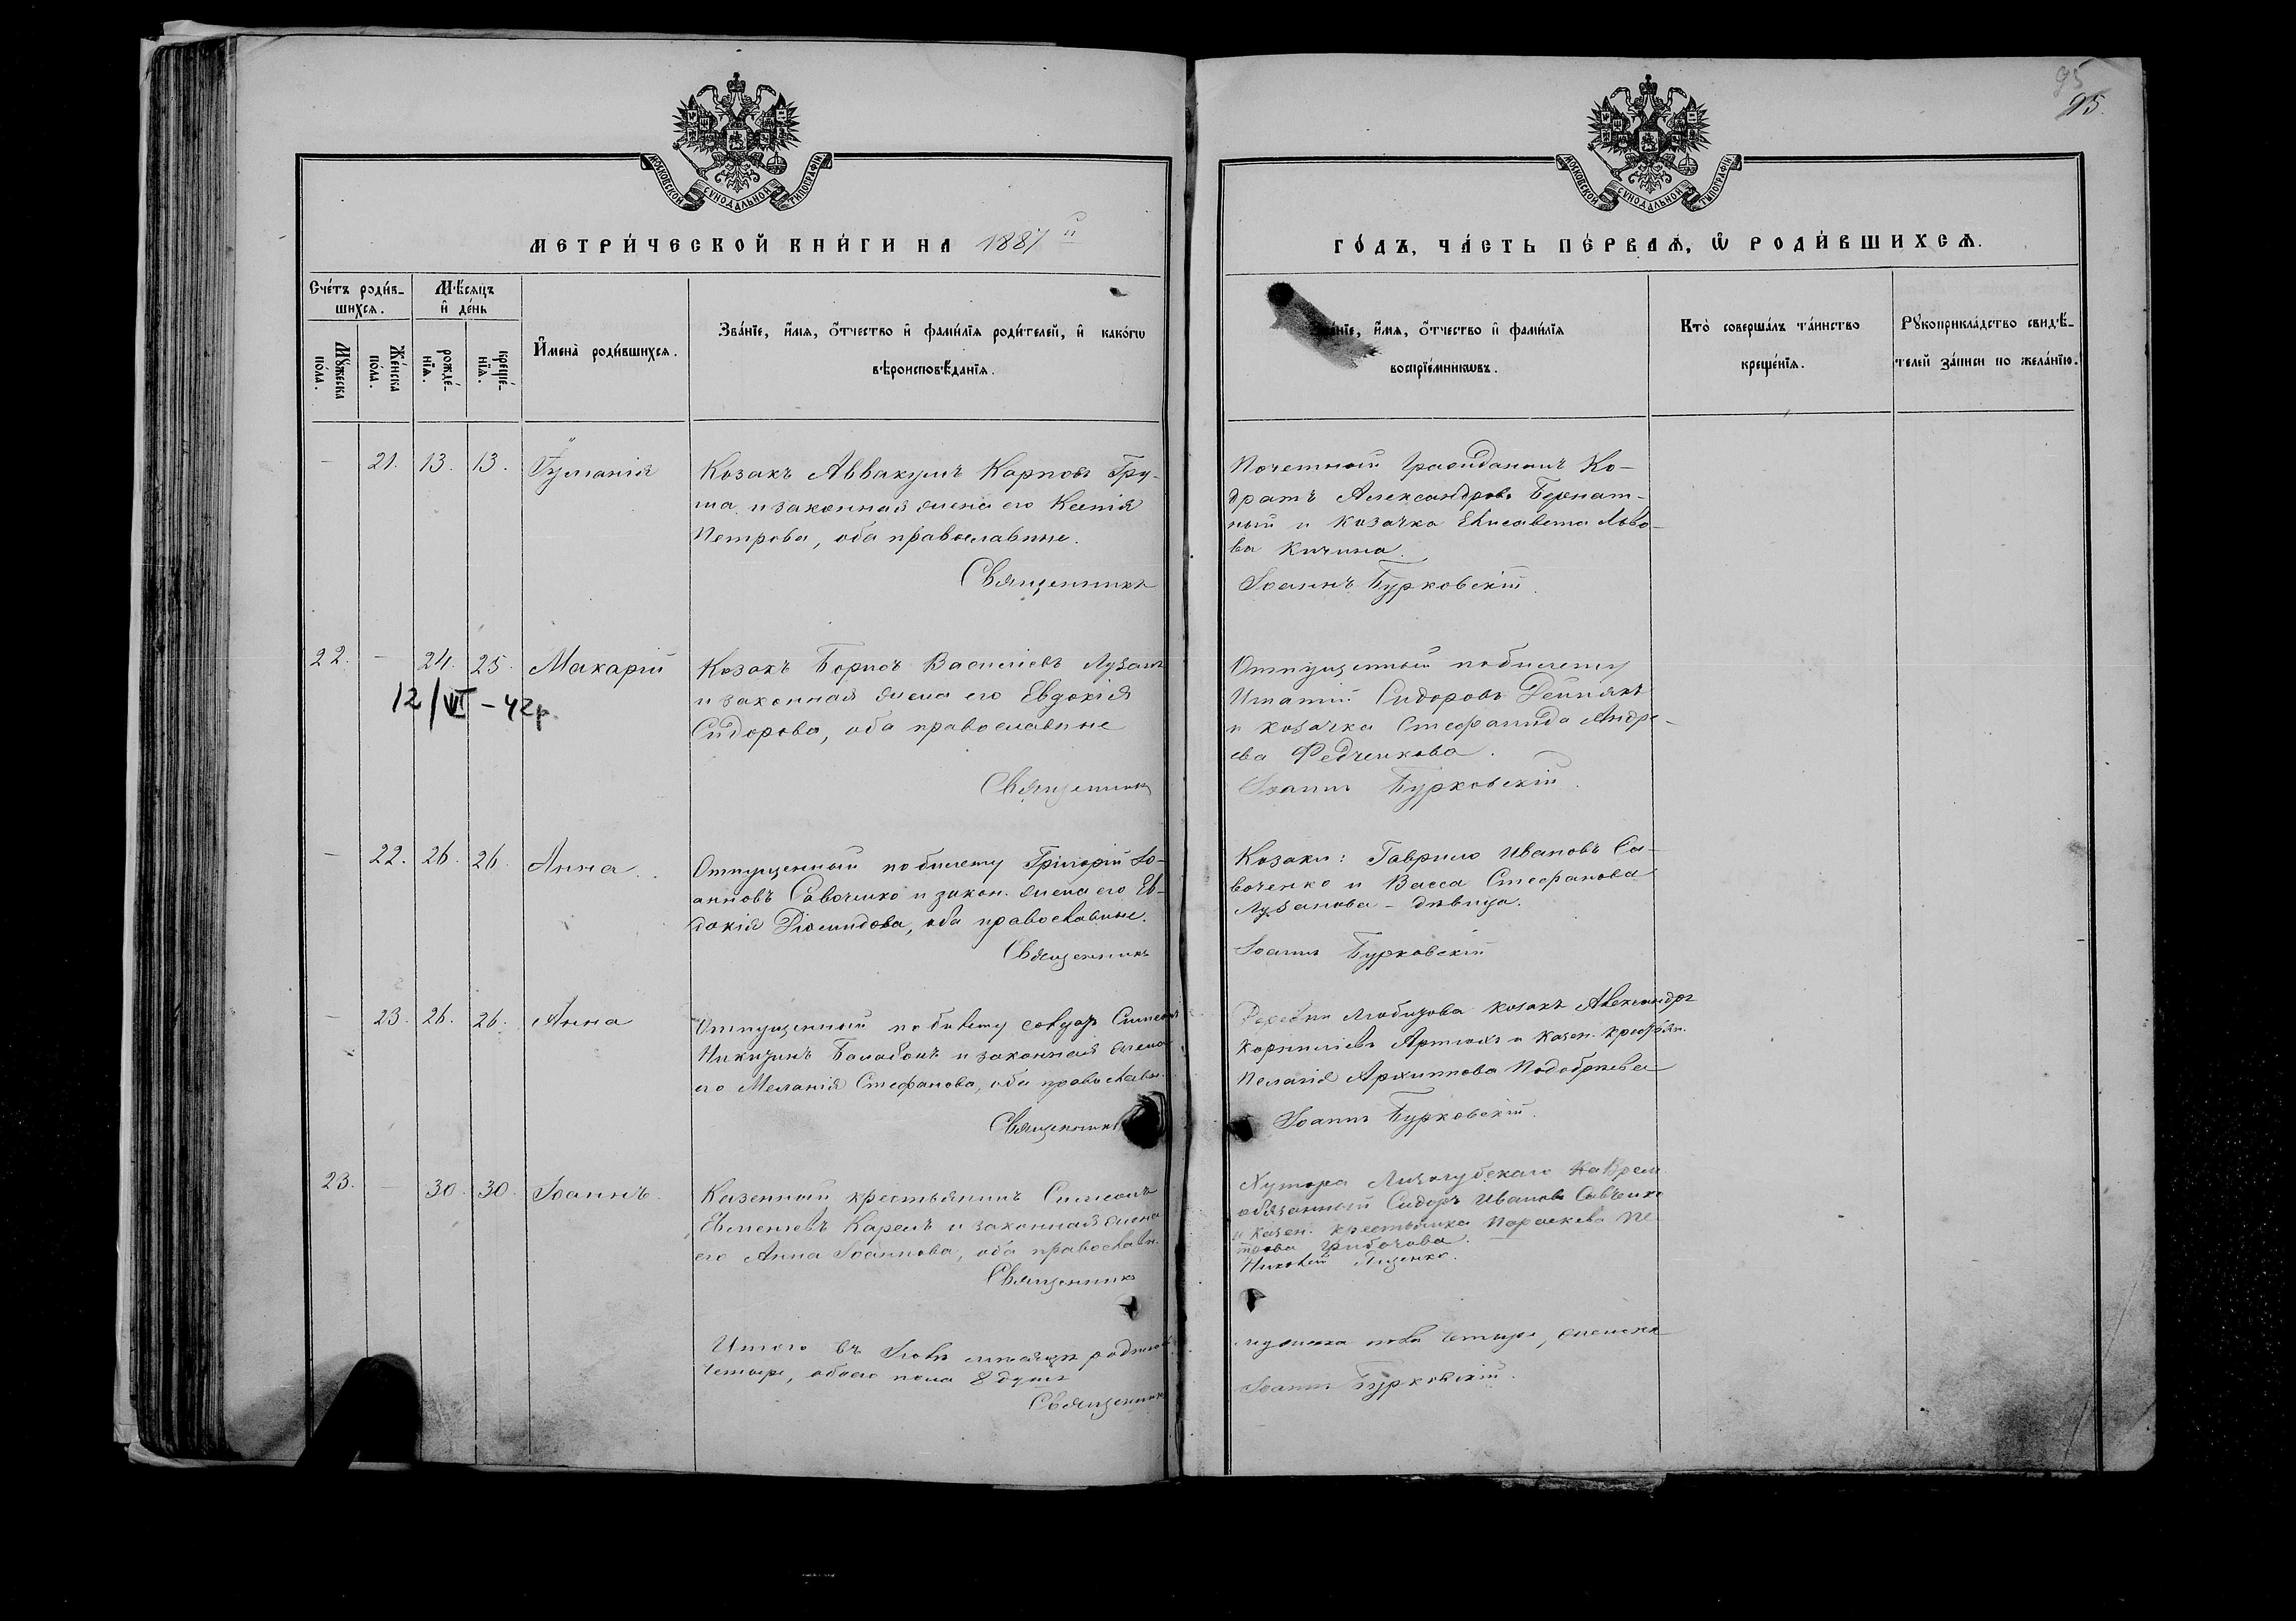 95
95.
МОСКОВСКОЙ СѴНОДАЛЬНОЙ ТИПОГРАФІИ
МОСКОВСКОЙ СѴНОДАЛЬНОЙ ТИПОГРАФІИ
МЕТРИ́ЧЕСКОЙ КНИ́ГИ НА 1887 й
ГО́ДЪ, ЧА́СТЬ ПЕ́РВАѦ, Ѽ РОДИ́ВШИХСѦ.
Сче́тъ роди́в-
шихсѧ.
Мꙋ́жеска
по́ла.
Же́нска
по́ла.
Мѣ́сѧцъ
и҆ де́нь
рожде́-
нїѧ.
креще́-
нїѧ.
И҆мена̀ роди́вшихсѧ.
Зва́нїе, и҆́мѧ, ѻ҆́тчество и҆ фами́лїѧ роди́телей, и҆ како́гѡ
вѣроисповѣ́данїѧ.
Зва́нїе, и҆́мѧ, ѻ҆́тчество и҆ фами́лїѧ
воспрїе́мникѡвъ.
Кто̀ соверша́лъ та́инство
креще́нїѧ.
Рꙋкоприкла́дство свидѣ́-
телей за́писи по жела́нїю.
— 21. 13. 13.
Козакъ Аввакумъ Карповъ Гру-
ша и законная жена его Ксенія
Петрова, оба православные.
Священникъ
Почетный Гражданинъ Ко-
дратъ Александровъ
ный и козачка Елисавета Льво-
ва Кичина.
Іоаннъ Бурковскій.
22. — 24. 25. Макарій
12/VI – 42р.
Козакъ Борисъ Василіевъ Лузанъ
и законная жена его Евдокія
Сидорова, оба православные
Священникъ
Отпущенный по билету
Игнатій Сидоровъ Дейнякъ
и козачка Стефанида Андре-
ева Федченкова.
Іоаннъ Бурковскій.
— 22. 26. 26. Анна.
Отпущенный по билету Григорій Іо-
анновъ Савоченко и закон. жена его Ев-
докія Діомидова, оба православные.
Священникъ
Козаки: Гаврило Ивановъ Са-
воченко и Васса Стефанова
Лузанова – дѣвица.
Іоаннъ Бурковскій
— 23. 26. 26. Анна
Отпущенный по билету Симеонъ
Никитинъ Балабонъ и законная жена
его Меланія Стефанова, оба православн.
Священникъ
Деревни козакъ Александръ
Корниліевъ Артюхъ и казен. крестьян.
Пелагія Архиппова
Іоаннъ Бурковскій.
23. — 30. 30. Іоаннъ.
Казенный крестьянинъ Симеонъ
Евменіевъ Карень и законная жена
его Анна Іоаннова, оба православн.
Священникъ
Хутора Лизогубскаго врем.
обязанный Сидоръ Ивановъ Савченко
и казен. крестьянка Параскева Пе-
трова
Николай
Итого въ Іюлѣ мѣсяцѣ родилось
мужеска пола четыре, женска
четыре, обоего пола 8 душъ
Священникъ
Іоаннъ Бурковскій.